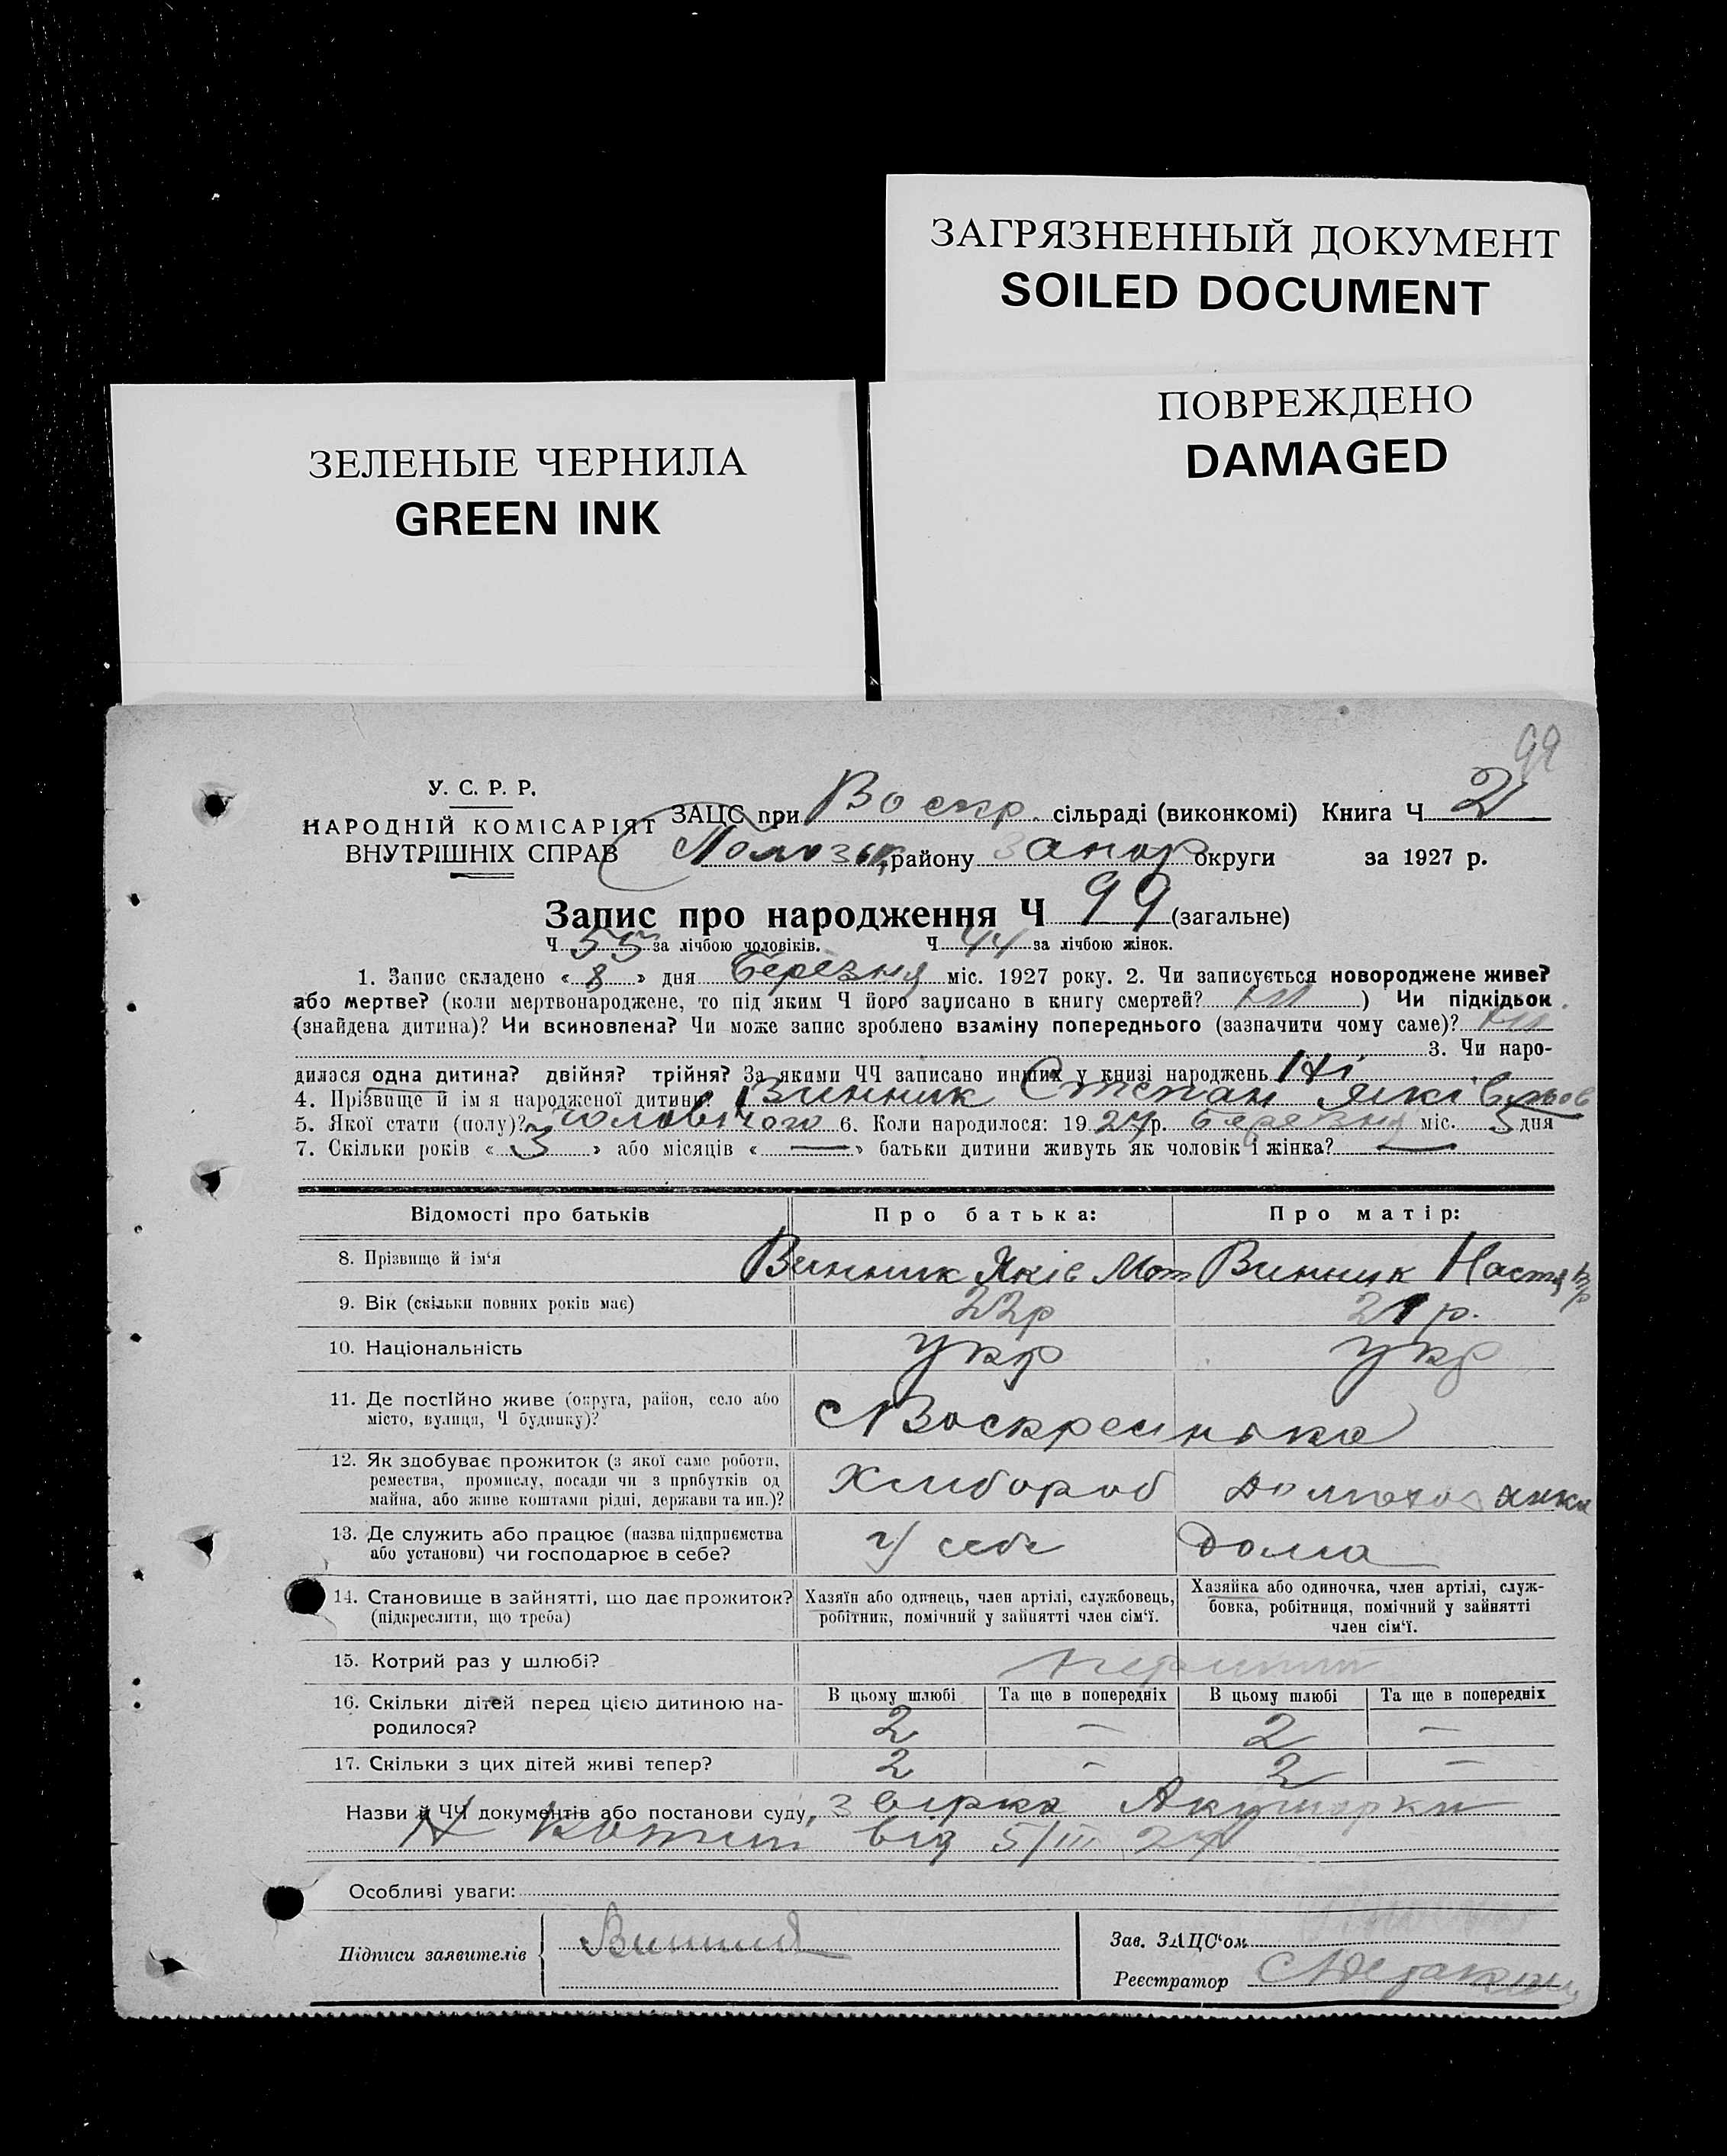 ЗАГРЯЗНЕННЫЙ ДОКУМЕНТ
SOILED DOCUMENT
ПОВРЕЖДЕНО
DAMAGED
ЗЕЛЕНЫЕ ЧЕРНИЛА
GREEN INK
99
У. С. Р. Р.
НАРОДНІЙ КОМІСАРІЯТ
ВНУТРІШНІХ СПРАВ
ЗАЦС при Воскр. сільраді (виконкомі) Книга Ч 2
району Запор округи за 1927 р.
Запис про народження Ч 99 (загальне)
Ч 55 за лічбою чоловіків. Ч 44 за лічбою жінок.
1. Запис складено « 8 » дня березня міс. 1927 року. 2. Чи записується новороджене живе?
або мертве? (коли мертвонароджене, то під яким Ч його записано в книгу смертей? ) Чи підкідьок
(знайдена дитина)? Чи всиновлена? Чи може запис зроблено взаміну попереднього (зазначити чому саме)?
3. Чи наро-
дилася одна дитина? двійня? трійня? За якими ЧЧ записано инших у книзі народжень Ні
4. Прізвище й ім я народженої дитини: Винник Степан Яківльов
5. Якої стати (полу)? чоловічого 6. Коли народилося: 1927 р. березня міс. 5 дня
7. Скільки років « 3 » або місяців « — » батьки дитини живуть як чоловік і жінка? —
Відомості про батьків Про батька: Про матір:
8. Прізвище й ім‘я Винник Яків Мот Винник Настя
9. Вік (скільки повних років має) 22р 21р.
10. Національність укр укр
11. Де постійно живе (округа, район, село або
місто, вулиця, Ч будинку)?
с Воскресенька
12. Як здобуває прожиток (з якої саме роботи,
ремества, промислу, посади чи з прибутків од
майна, або живе коштами рідні, держави та ин.)?
Хлибороб
13. Де служить або працює (назва підприємства
або установи) чи господарює в себе?
у себе дома
14. Становище в зайнятті, що дає прожиток?
(підкреслити, що треба)
Хазяїн або одинець, член артілі, службовець,
робітник, помічний у зайнятті член сім‘ї.
Хазяйка або одиночка, член артілі, служ-
бовка, робітниця, помічний у зайнятті
член сім‘ї.
15. Котрий раз у шлюбі?
16. Скільки дітей перед цією дитиною на-
родилося?
В цьому шлюбі Та ще в попередніх В цьому шлюбі Та ще в попередніх
2 — 2 —
17. Скільки з цих дітей живі тепер? 2 - 2 —
Назви й ЧЧ документів або постанови суду, Акушорки
від 5/III 27
Особливі уваги:
Підписи заявителів Винник
Зав. ЗАЦС‘ом
Реєстратор